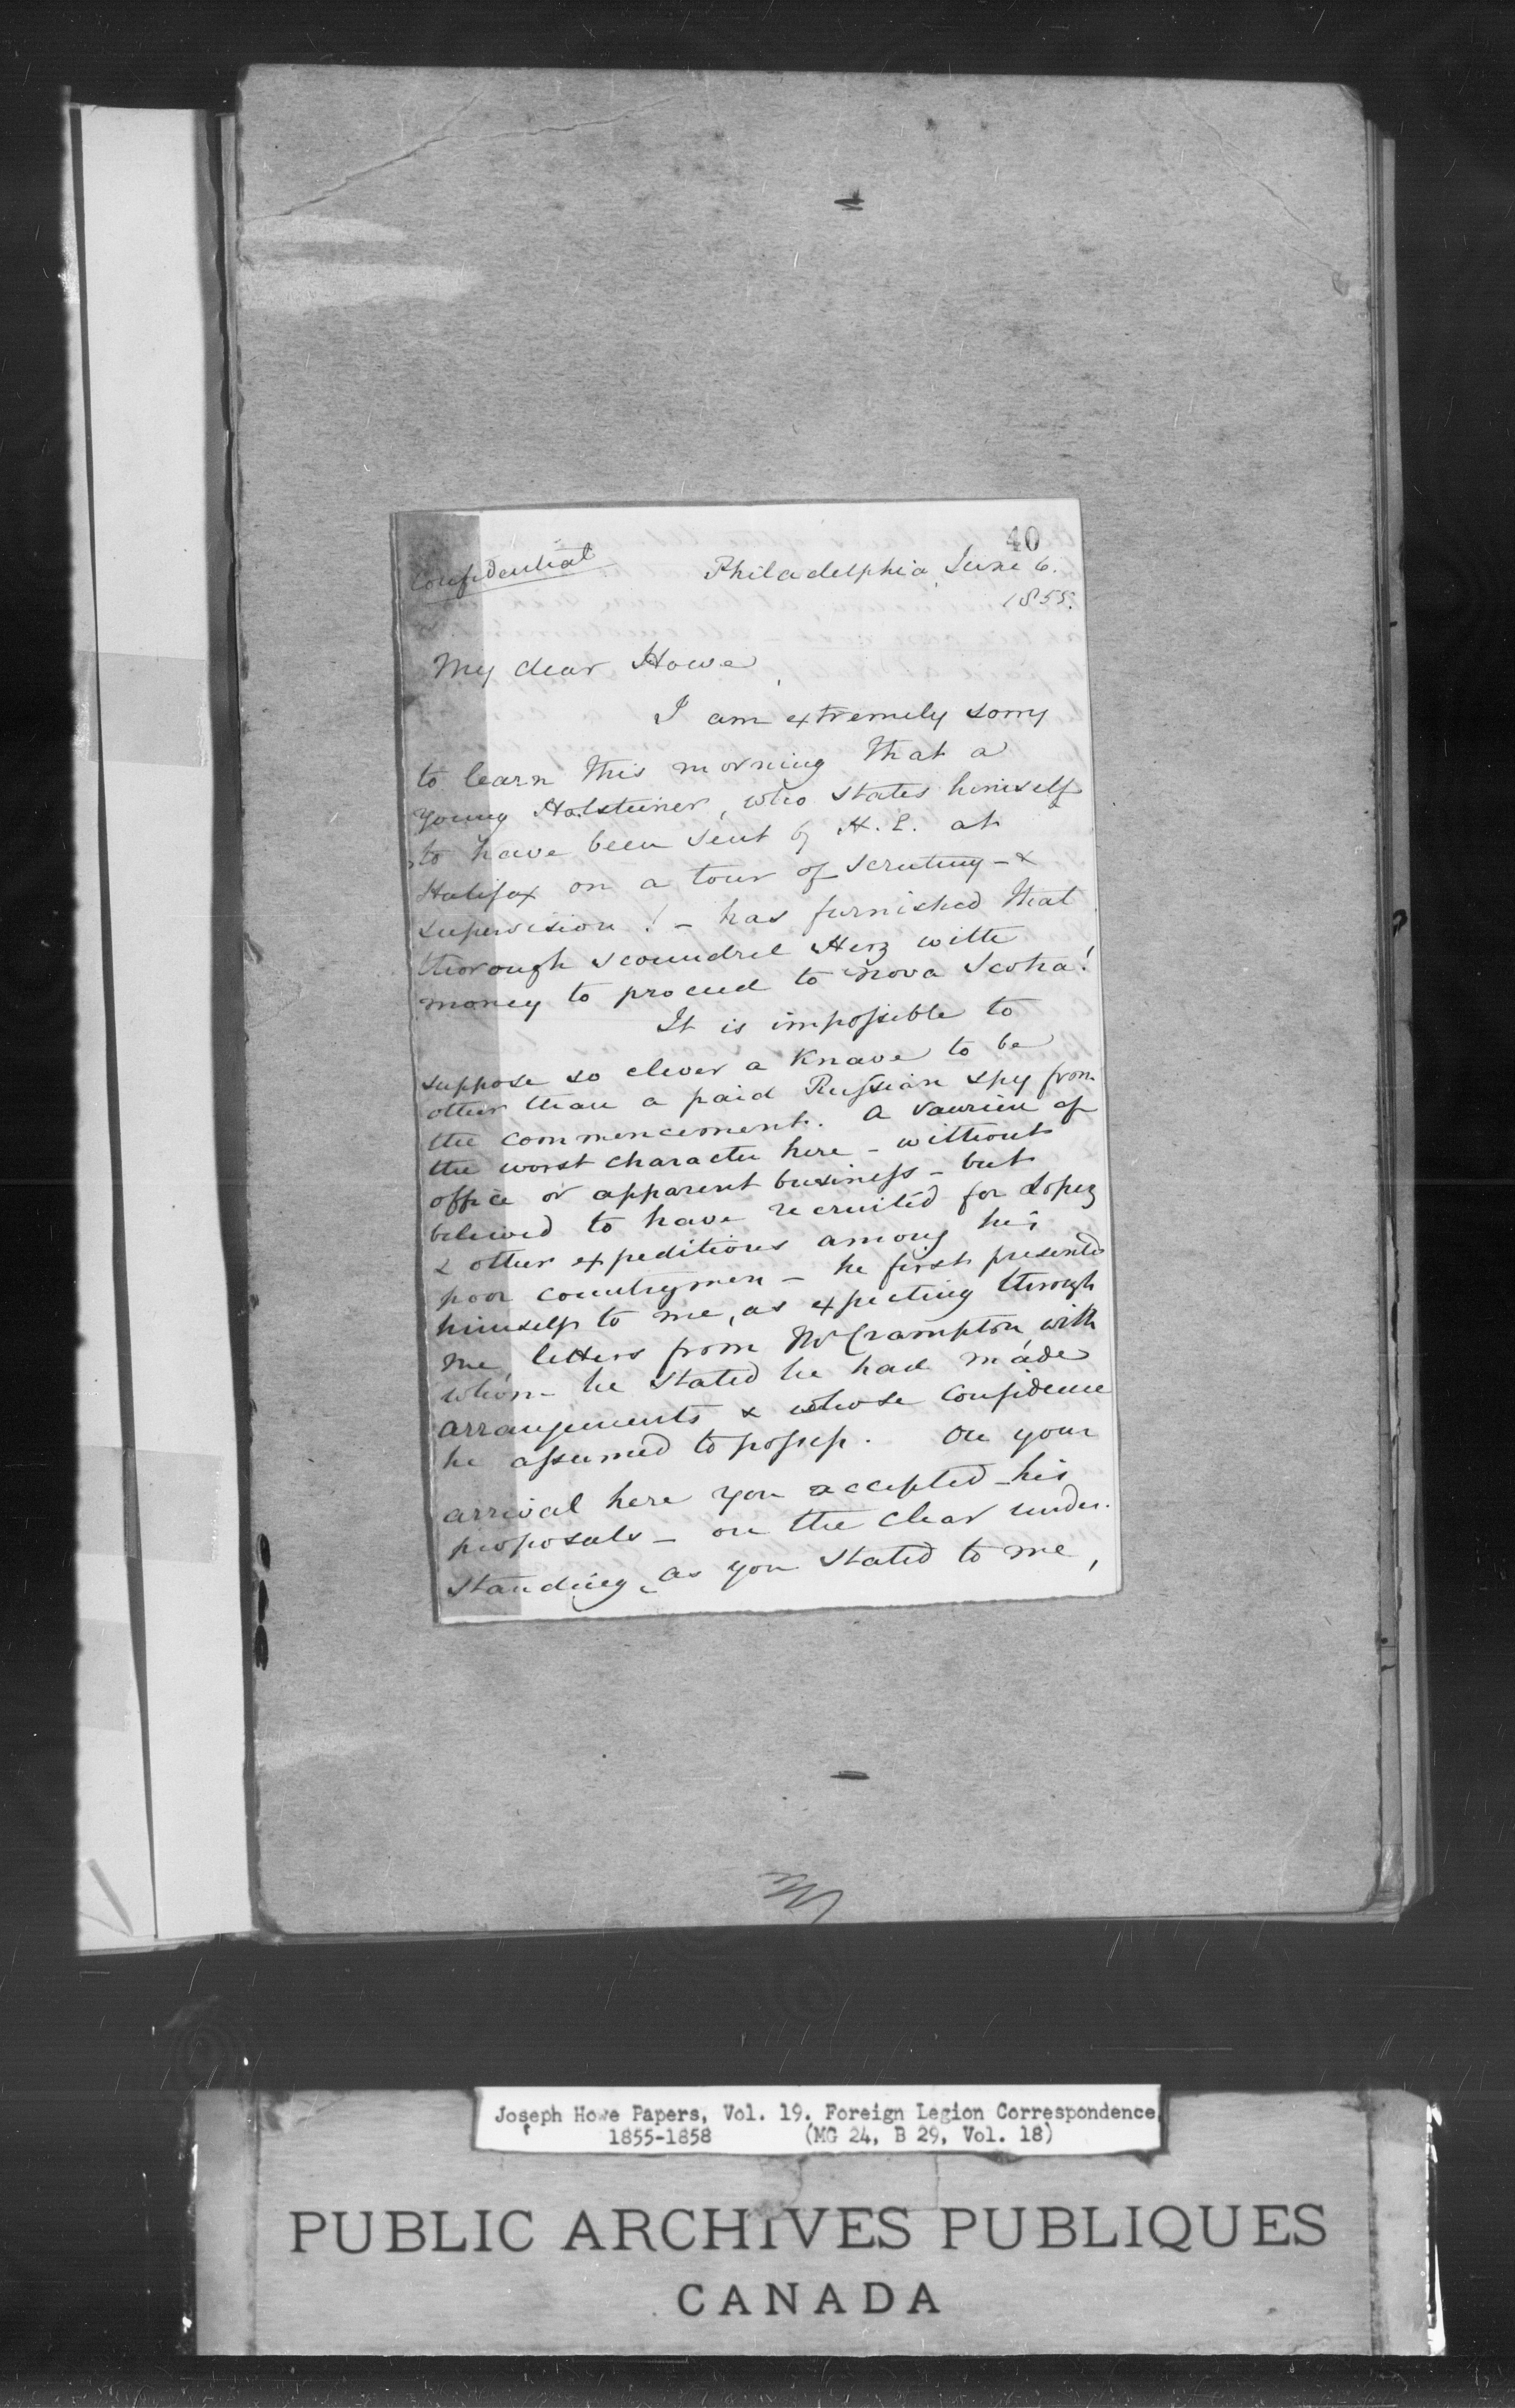 40
Confidential
Philadelphia, June 6.
1855.
My dear Howe,
I am extremely sorry
to learn this morning that a
young Holsteiner, who states himself
to have been sent by H. E. at
Halifax on a tour of scrutiny - &
supervision! - has furnished that
thorough scoundrel Herz with
money to proceed to Nova Scotia!
It is impossible to
suppose so clever a Knave to be
other than a paid Russian spy from
the commencement. A vaurien of
the worst character here - without
office or apparent business - but
believed to have recruited for Lopez
& other expeditions among his
poor countrymen - he first presented
himself to me, as expecting through
me, letters from Mr Crampton, with
whom he stated he had made
arrangements & whose confidence
he assumed to possess. On your
arrival here you accepted his
proposals - on the clear under-
standing, as you stated to me,
Joseph Howe Papers, Vol. 19. Foreign Legion Correspondence
1855-1858 (MG 24, B 29, Vol. 18)
PUBLIC ARCHIVES PUBLIQUES
CANADA